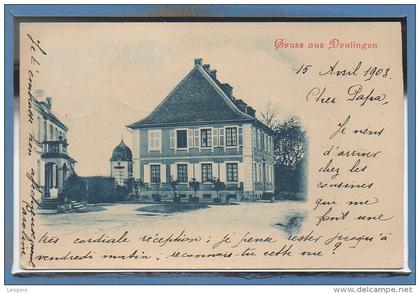 Gruss aus Drulingen
15 Avril 1903.
Cher Papa,
Je viens
d'arriver
chez les
cousines
qui me
font une
très cordiale réception ; je pense rester jusqu'à
vendredi matin ; reconnais tu cette vue ?
Je t'embrasse bien affectueusement